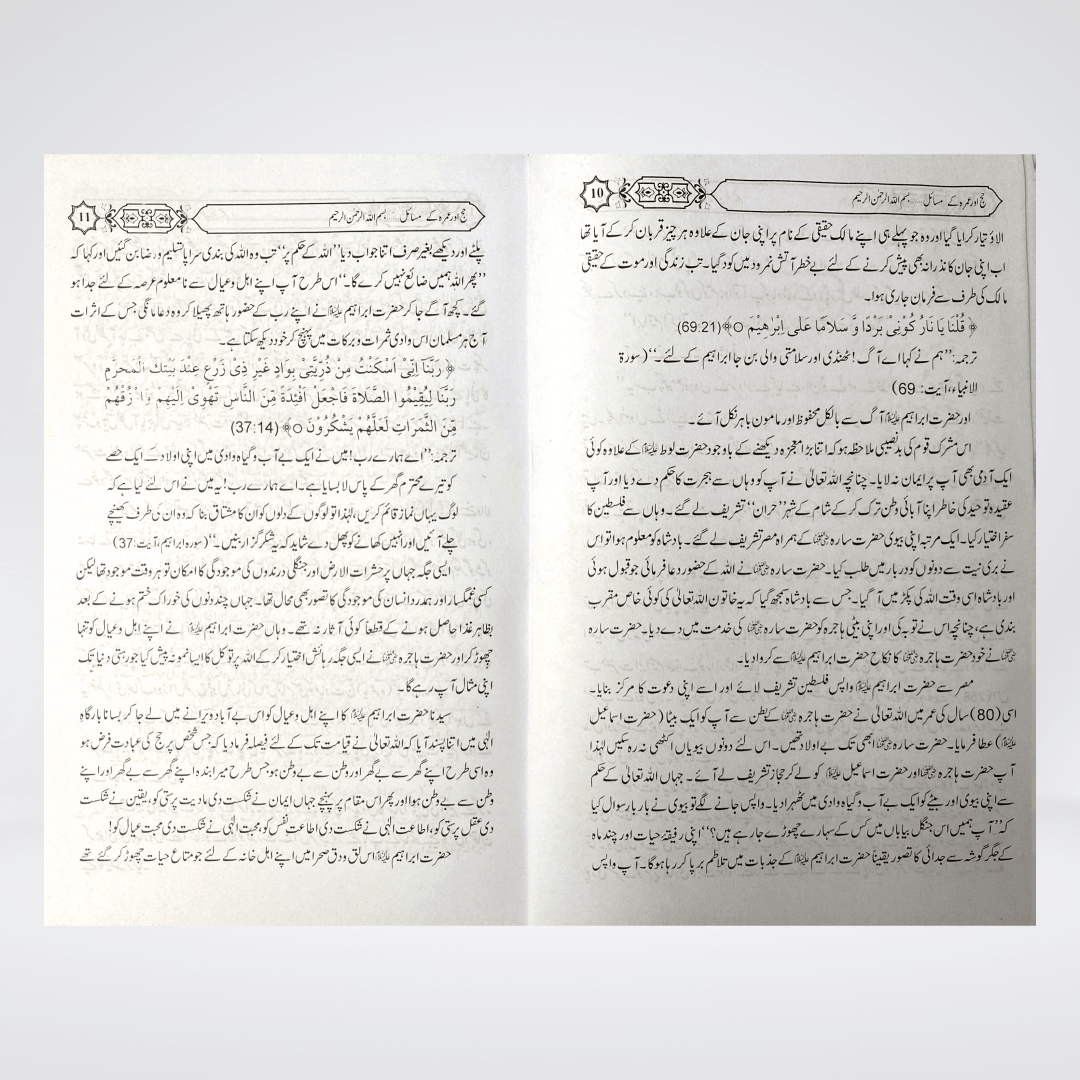 حج اور عمرہ کے مسائل......بسم اللہ الرحمٰن الرحیم
10
الاؤ تیار کرایا گیا اور وہ جو پہلے ہی اپنے مالک حقیقی کے نام پر اپنی جان کے علاوہ ہر چیز قربان کر کے آیا تھا
اب اپنی جان کا نذرانہ بھی پیش کرنے کے لئے بے خطر آتش نمرود میں کود گیا۔ تب زندگی اور موت کے حقیقی
مالک کی طرف سے فرمان جاری ہوا۔
﴿ قُلْنَا يَا نَارُ كُوْنِيْ بَرْدًا وَّ سَلَامًا عَلٰى اِبْرٰهِيْمَ ○﴾(69:21)
ترجمہ:”ہم نے کہا اے آگ! ٹھنڈی اور سلامتی والی بن جا ابراہیم کے لئے۔“ (سورۃ
الانبیاء، آیت: 69)
اور حضرت ابراہیم علیہ السلام آگ سے بالکل محفوظ اور مامون باہر نکل آئے۔
اس مشرک قوم کی بدنصیبی ملاحظہ ہو کہ اتنا بڑا معجزہ دیکھنے کے باوجود حضرت لوط علیہ السلام کے علاوہ کوئی
ایک آدمی بھی آپ پر ایمان نہ لایا۔ چنانچہ اللہ تعالیٰ نے آپ کو وہاں سے ہجرت کا حکم دے دیا اور آپ
عقیدہ توحید کی خاطر اپنا آبائی وطن ترک کر کے شام کے شہر ”حران“ تشریف لے گئے۔ وہاں سے فلسطین کا
سفر اختیار کیا۔ ایک مرتبہ اپنی بیوی حضرت سارہ علیہا السلام کے ہمراہ مصر تشریف لے گئے۔ بادشاہ کو معلوم ہوا تو اس
نے بری نیت سے دونوں کو دربار میں طلب کیا۔ حضرت سارہ علیہا السلام نے اللہ کے حضور دعا فرمائی جو قبول ہوئی
اور بادشاہ اسی وقت اللہ کی پکڑ میں آ گیا۔ جس سے بادشاہ سمجھ گیا کہ یہ خاتون اللہ تعالیٰ کی کوئی خاص مقرب
بندی ہے، چنانچہ اس نے توبہ کی اور اپنی بیٹی ہاجرہ کو حضرت سارہ علیہا السلام کی خدمت میں دے دیا۔ حضرت سارہ
علیہا السلام نے خود حضرت ہاجرہ علیہا السلام کا نکاح حضرت ابراہیم علیہ السلام سے کروا دیا۔
مصر سے حضرت ابراہیم علیہ السلام واپس فلسطین تشریف لائے اور اسے اپنی دعوت کا مرکز بنایا۔
اسی (80) سال کی عمر میں اللہ تعالیٰ نے حضرت ہاجرہ علیہا السلام کے بطن سے آپ کو ایک بیٹا (حضرت اسماعیل
علیہ السلام) عطا فرمایا۔ حضرت سارہ علیہا السلام ابھی تک بے اولاد تھیں۔ اس لئے دونوں بیویاں اکٹھی نہ رہ سکیں لہٰذا
آپ حضرت ہاجرہ علیہا السلام اور حضرت اسماعیل علیہ السلام کو لے کر حجاز تشریف لے آئے۔ جہاں اللہ تعالیٰ کے حکم
سے اپنی بیوی اور بیٹے کو ایک بے آب و گیاہ وادی میں ٹھہرا دیا۔ واپس جانے لگے تو بیوی نے بار بار سوال کیا
کہ ”آپ ہمیں اس جنگل بیاباں میں کس کے سہارے چھوڑے جا رہے ہیں؟“ اپنی رفیقۂ حیات اور چند ماہ
کے جگر گوشہ سے جدائی کا تصور یقیناً حضرت ابراہیم علیہ السلام کے جذبات میں تلاطم برپا کر رہا ہو گا۔ آپ واپس
حج اور عمرہ کے مسائل......بسم اللہ الرحمٰن الرحیم
11
پلٹے اور دیکھے بغیر صرف اتنا جواب دیا ”اللہ کے حکم پر“ تب وہ اللہ کی بندی سراپا تسلیم و رضا بن گئیں اور کہا کہ
”پھر اللہ ہمیں ضائع نہیں کرے گا۔“ اس طرح آپ اپنے اہل و عیال سے نامعلوم عرصہ کے لئے جدا ہو
گئے۔ کچھ آگے جا کر حضرت ابراہیم علیہ السلام نے اپنے رب کے حضور ہاتھ پھیلا کر وہ دعا مانگی جس کے اثرات
آج ہر مسلمان اس وادی ثمرات و برکات میں پہنچ کر خود دیکھ سکتا ہے۔
﴿ رَبَّنَا اِنِّىْ اَسْكَنْتُ مِنْ ذُرِّيَّتِىْ بِوَادٍ غَيْرِ ذِىْ زَرْعٍ عِنْدَ بَيْتِكَ الْمُحَرَّمِ
رَبَّنَا لِيُقِيْمُوا الصَّلَاةَ فَاجْعَلْ اَفْئِدَةً مِّنَ النَّاسِ تَهْوِىْ اِلَيْهِمْ وَارْزُقْهُمْ
مِّنَ الثَّمَرَاتِ لَعَلَّهُمْ يَشْكُرُوْنَ ○﴾(37:14)
ترجمہ:”اے ہمارے رب! میں نے ایک بے آب و گیاہ وادی میں اپنی اولاد کے ایک حصے
کو تیرے محترم گھر کے پاس لا بسایا ہے۔ اے ہمارے رب! یہ میں نے اس لئے کیا ہے کہ
لوگ یہاں نماز قائم کریں، لہٰذا تو لوگوں کے دلوں کو ان کا مشتاق بنا کہ وہ ان کی طرف کھینچے
چلے آئیں اور انہیں کھانے کو پھل دے شاید کہ یہ شکر گزار بنیں۔“ (سورہ ابراہیم، آیت: 37)
ایسی جگہ جہاں پر حشرات الارض اور جنگلی درندوں کی موجودگی کا امکان تو ہر وقت موجود تھا لیکن
کسی غمگسار اور ہمدرد انسان کی موجودگی کا تصور بھی محال تھا۔ جہاں چند دنوں کی خوراک ختم ہونے کے بعد
بظاہر غذا حاصل ہونے کے قطعاً کوئی آثار نہ تھے۔ وہاں حضرت ابراہیم علیہ السلام نے اپنے اہل و عیال کو تنہا
چھوڑ کر اور حضرت ہاجرہ علیہا السلام نے ایسی جگہ رہائش اختیار کر کے اللہ پر توکل کا ایسا نمونہ پیش کیا جو رہتی دنیا تک
اپنی مثال آپ رہے گا۔
سیدنا حضرت ابراہیم علیہ السلام کا اپنے اہل و عیال کو اس بے آباد ویرانے میں لے جا کر بسانا بارگاہ
الٰہی میں اتنا پسند آیا کہ اللہ تعالیٰ نے قیامت تک کے لئے فیصلہ فرما دیا کہ جس شخص پر حج کی عبادت فرض ہو
وہ اسی طرح اپنے گھر سے بے گھر اور وطن سے بے وطن ہو جس طرح میرا بندہ اپنے گھر سے بے گھر اور اپنے
وطن سے بے وطن ہوا اور پھر اس مقام پر پہنچے جہاں ایمان نے شکست دی مادیت پرستی کو، یقین نے شکست
دی عقل پرستی کو، اطاعت الٰہی نے شکست دی اطاعت نفس کو، محبت الٰہی نے شکست دی محبت عیال کو!
حضرت ابراہیم علیہ السلام اس لق و دق صحرا میں اپنے اہل خانہ کے لئے جو متاع حیات چھوڑ کر گئے تھے